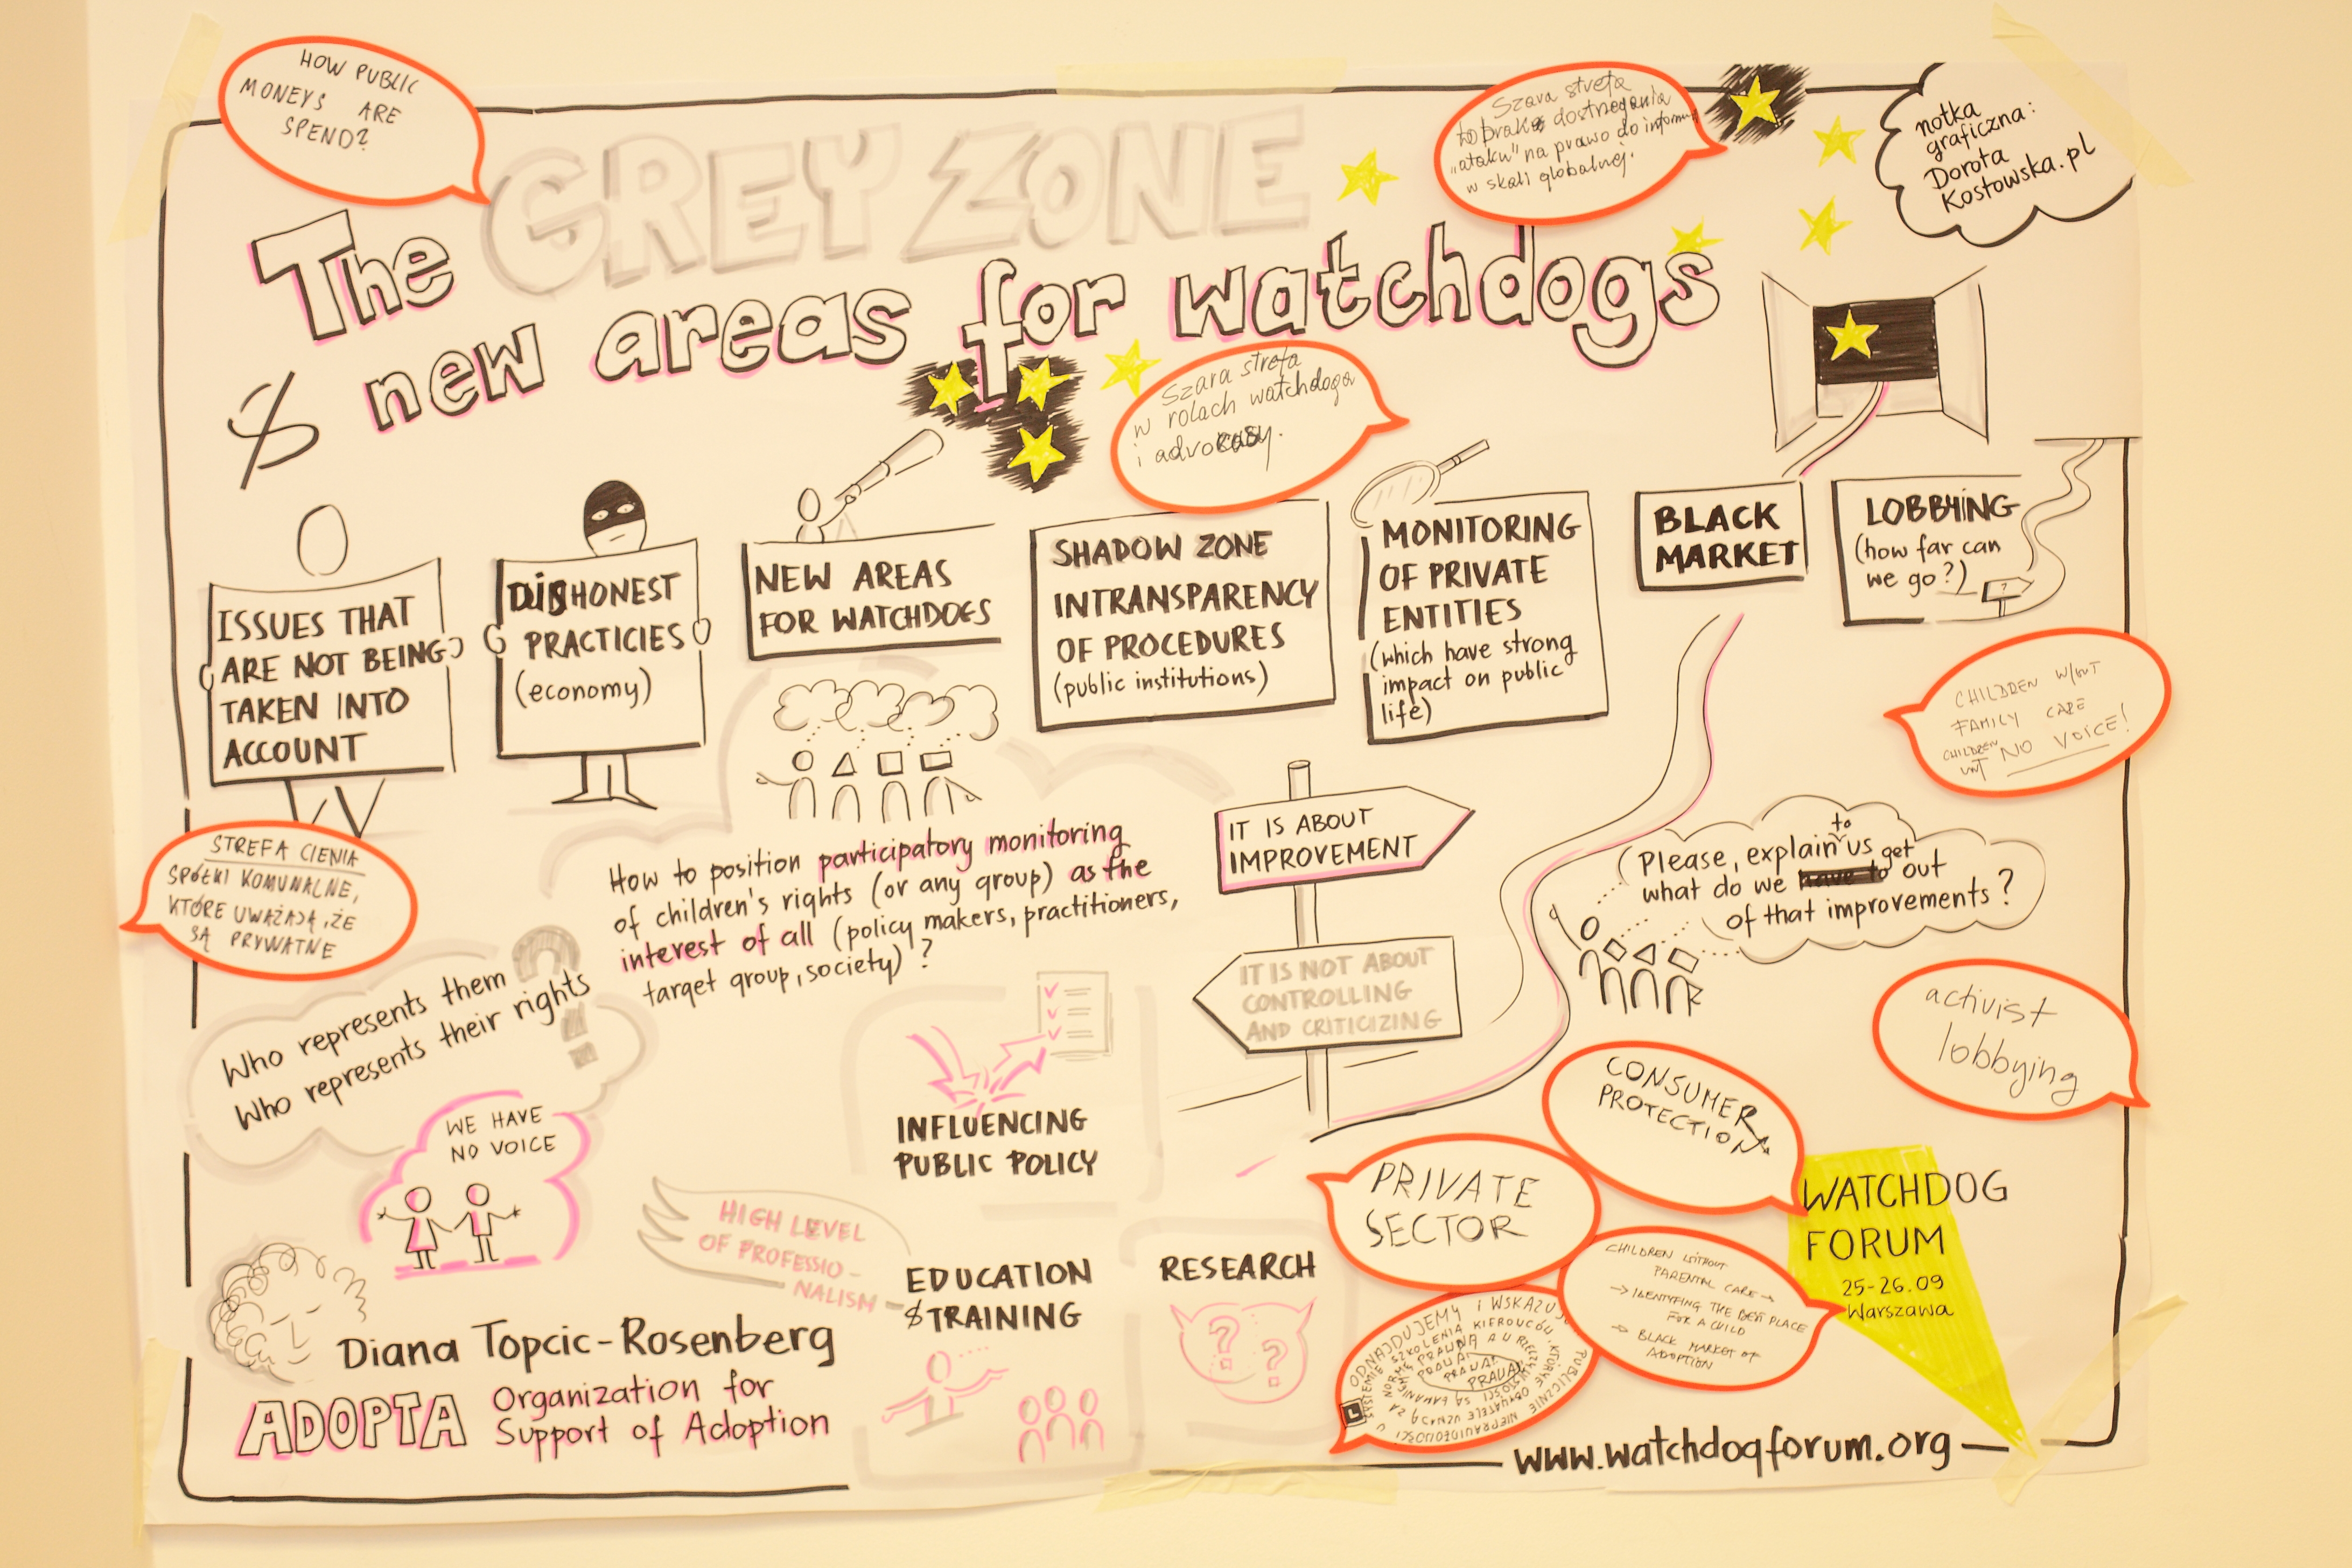 HOW PUBLIC
MONEYS ARE
SPEND?
The GREY ZONE
& new areas for watchdogs
Szara strefa
to brak dostrzegania
"ataku" na prawo do inform.
w skali globalnej.
notka
graficzna:
Dorota
Kostowska.pl
Szara strefa
w rolach watchdoga
i advocasy.
ISSUES THAT
ARE NOT BEING
TAKEN INTO
ACCOUNT
DISHONEST
PRACTICIES
(economy)
NEW AREAS
FOR WATCHDOGS
SHADOW ZONE
INTRANSPARENCY
OF PROCEDURES
(public institutions)
MONITORING
OF PRIVATE
ENTITIES
(which have strong
impact on public
life)
BLACK
MARKET
LOBBYING
(how far can
we go?)
?
CHILDREN W/OUT
FAMILY CARE
CHILDREN
NO VOICE!
STREFA CIENIA
SPÓŁKI KOMUNALNE,
KTÓRE UWAŻAJĄ, ŻE
SĄ PRYWATNE
How to position participatory monitoring
of children's rights (or any group) as the
interest of all (policy makers, practitioners,
target group, society)?
IT IS ABOUT
IMPROVEMENT
IT IS NOT ABOUT
CONTROLLING
AND CRITICIZING
to
Please, explain us get
what do we have to out
of that improvements?
Who represents them
Who represents their rights
?
WE HAVE
NO VOICE
activist
lobbying
INFLUENCING
PUBLIC POLICY
CONSUMER
PROTECTION
PRIVATE
SECTOR
HIGH LEVEL
OF PROFESSIO-
NALISM
EDUCATION
& TRAINING
RESEARCH
? ?
CHILDREN WITHOUT
PARENTAL CARE →
→ IDENTYFING THE BEST PLACE
FOR A CHILD
→ BLACK MARKET OF
ADOPTION
WATCHDOG
FORUM
25-26.09
Warszawa
ODNAJDUJEMY I WSKAZUJ
SYSTEMIE SZKOLENIA KIEROWCÓW, KTÓRE
PRAWDA!
PRAWDA!
Diana Topcic-Rosenberg
ADOPTA Organization for
Support of Adoption
www.watchdogforum.org